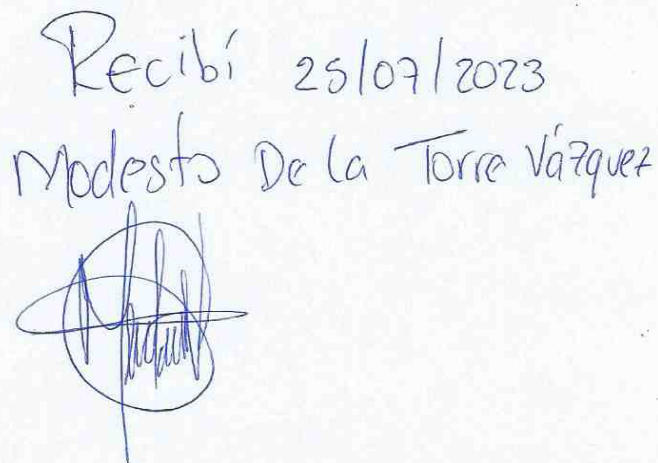 Recibí 25/07/2023
Modesto De la Torre Vázquez